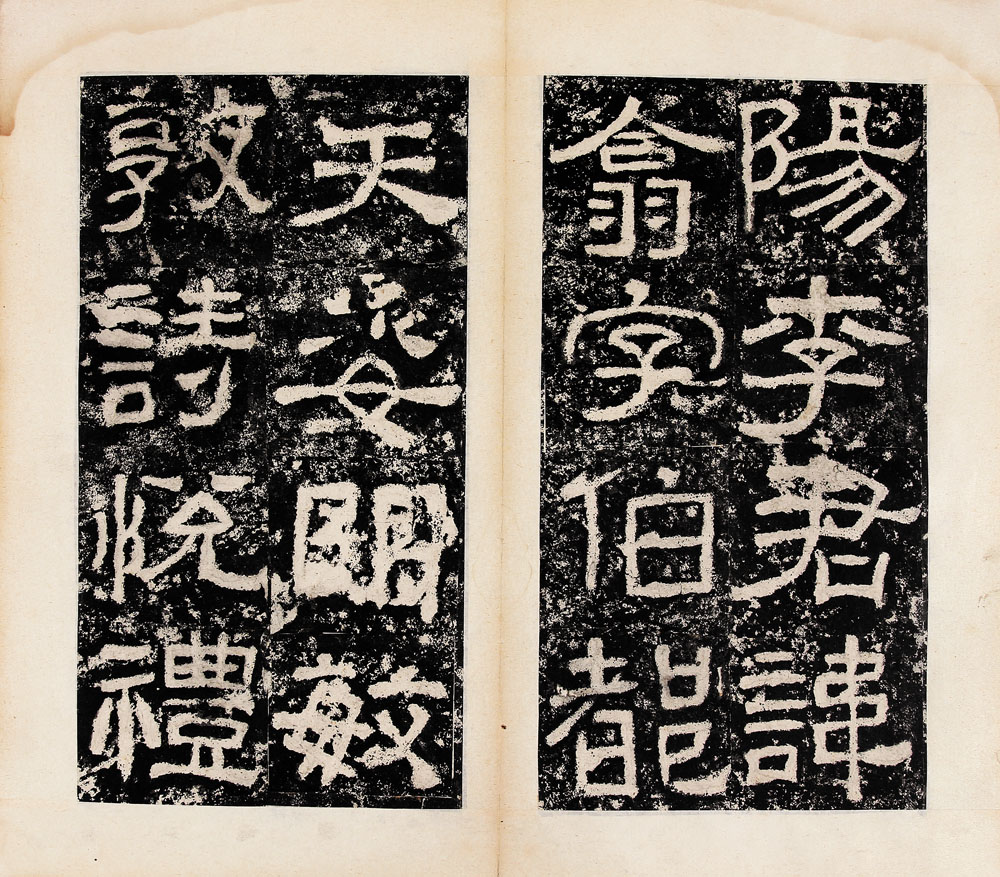 陽李君諱
翕字伯都
天姿明敏
敦詩悅禮